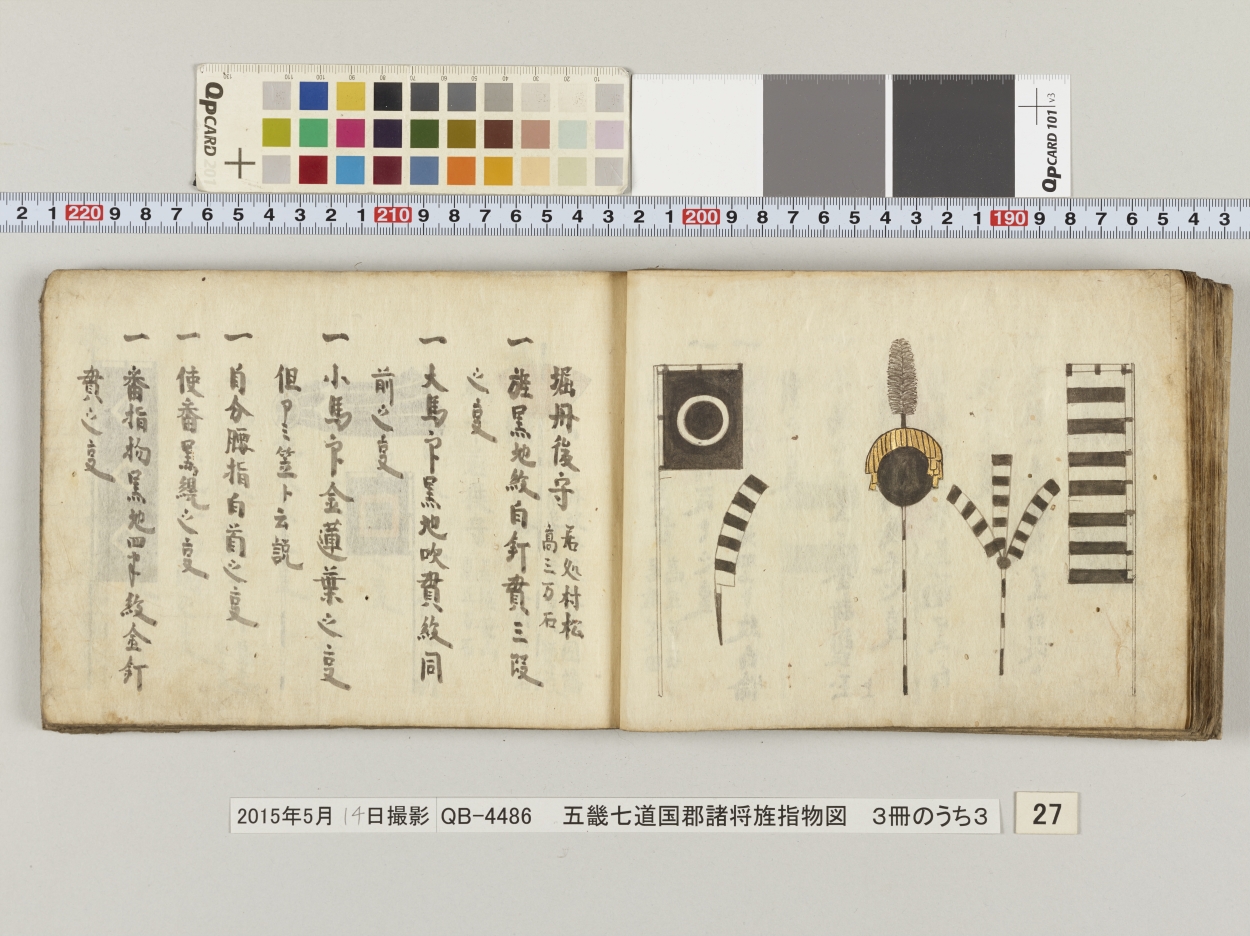 QPCARD 201
QPCARD 101 v3
2 1 220 9 8 7 6 5 4 3 2 1 210 9 8 7 6 5 4 3 2 1 200 9 8 7 6 5 4 3 2 1 190 9 8 7 6 5 4 3
堀丹後守 居処村松
高三万石
一 旌黒地紋白釘貫三段
之事
一 大馬印黒地吹貫紋同
前之事
一 小馬印金蓮葉之事
但シミ笠ト云説
一 自分腰指白
之事
一 使番黒
之事
一 番指物黒地四半紋金釘
貫之事
2015年5月14日撮影 QB-4486 五畿七道国郡諸将旌指物図 3冊のうち3
27